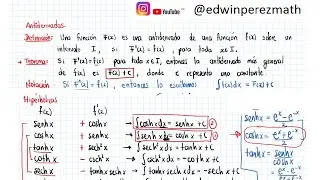 YouTube @edwinperezmath
Antiderivadas.
Definición: Una función F(x) es una antiderivada de una función f(x) sobre un
intervalo I, si F'(x) = f(x), para toda x∈I.
Teorema: Si F'(x) = f(x) para toda x∈I, entonces la antiderivada más general
de f(x) es F(x)+C, donde C representa una constante.
Notación Si F'(x) = f(x), entonces lo escribimos ∫f(x)dx = F(x)+C
Hiperbólicas
f(x) f'(x)
senhx + coshx → ∫coshx dx = senhx + C
coshx + senhx → ∫senhx dx = coshx + C
tanhx + sech²x → ∫sech²x dx = tanhx + C
cothx - csch²x → ∫csch²x dx = -cothx + C
sechx - tanhx sechx → ∫tanhx sechx dx = -sechx + C
senhx = eˣ - e⁻ˣ / 2
coshx = eˣ + e⁻ˣ / 2
tanhx = senhx / coshx